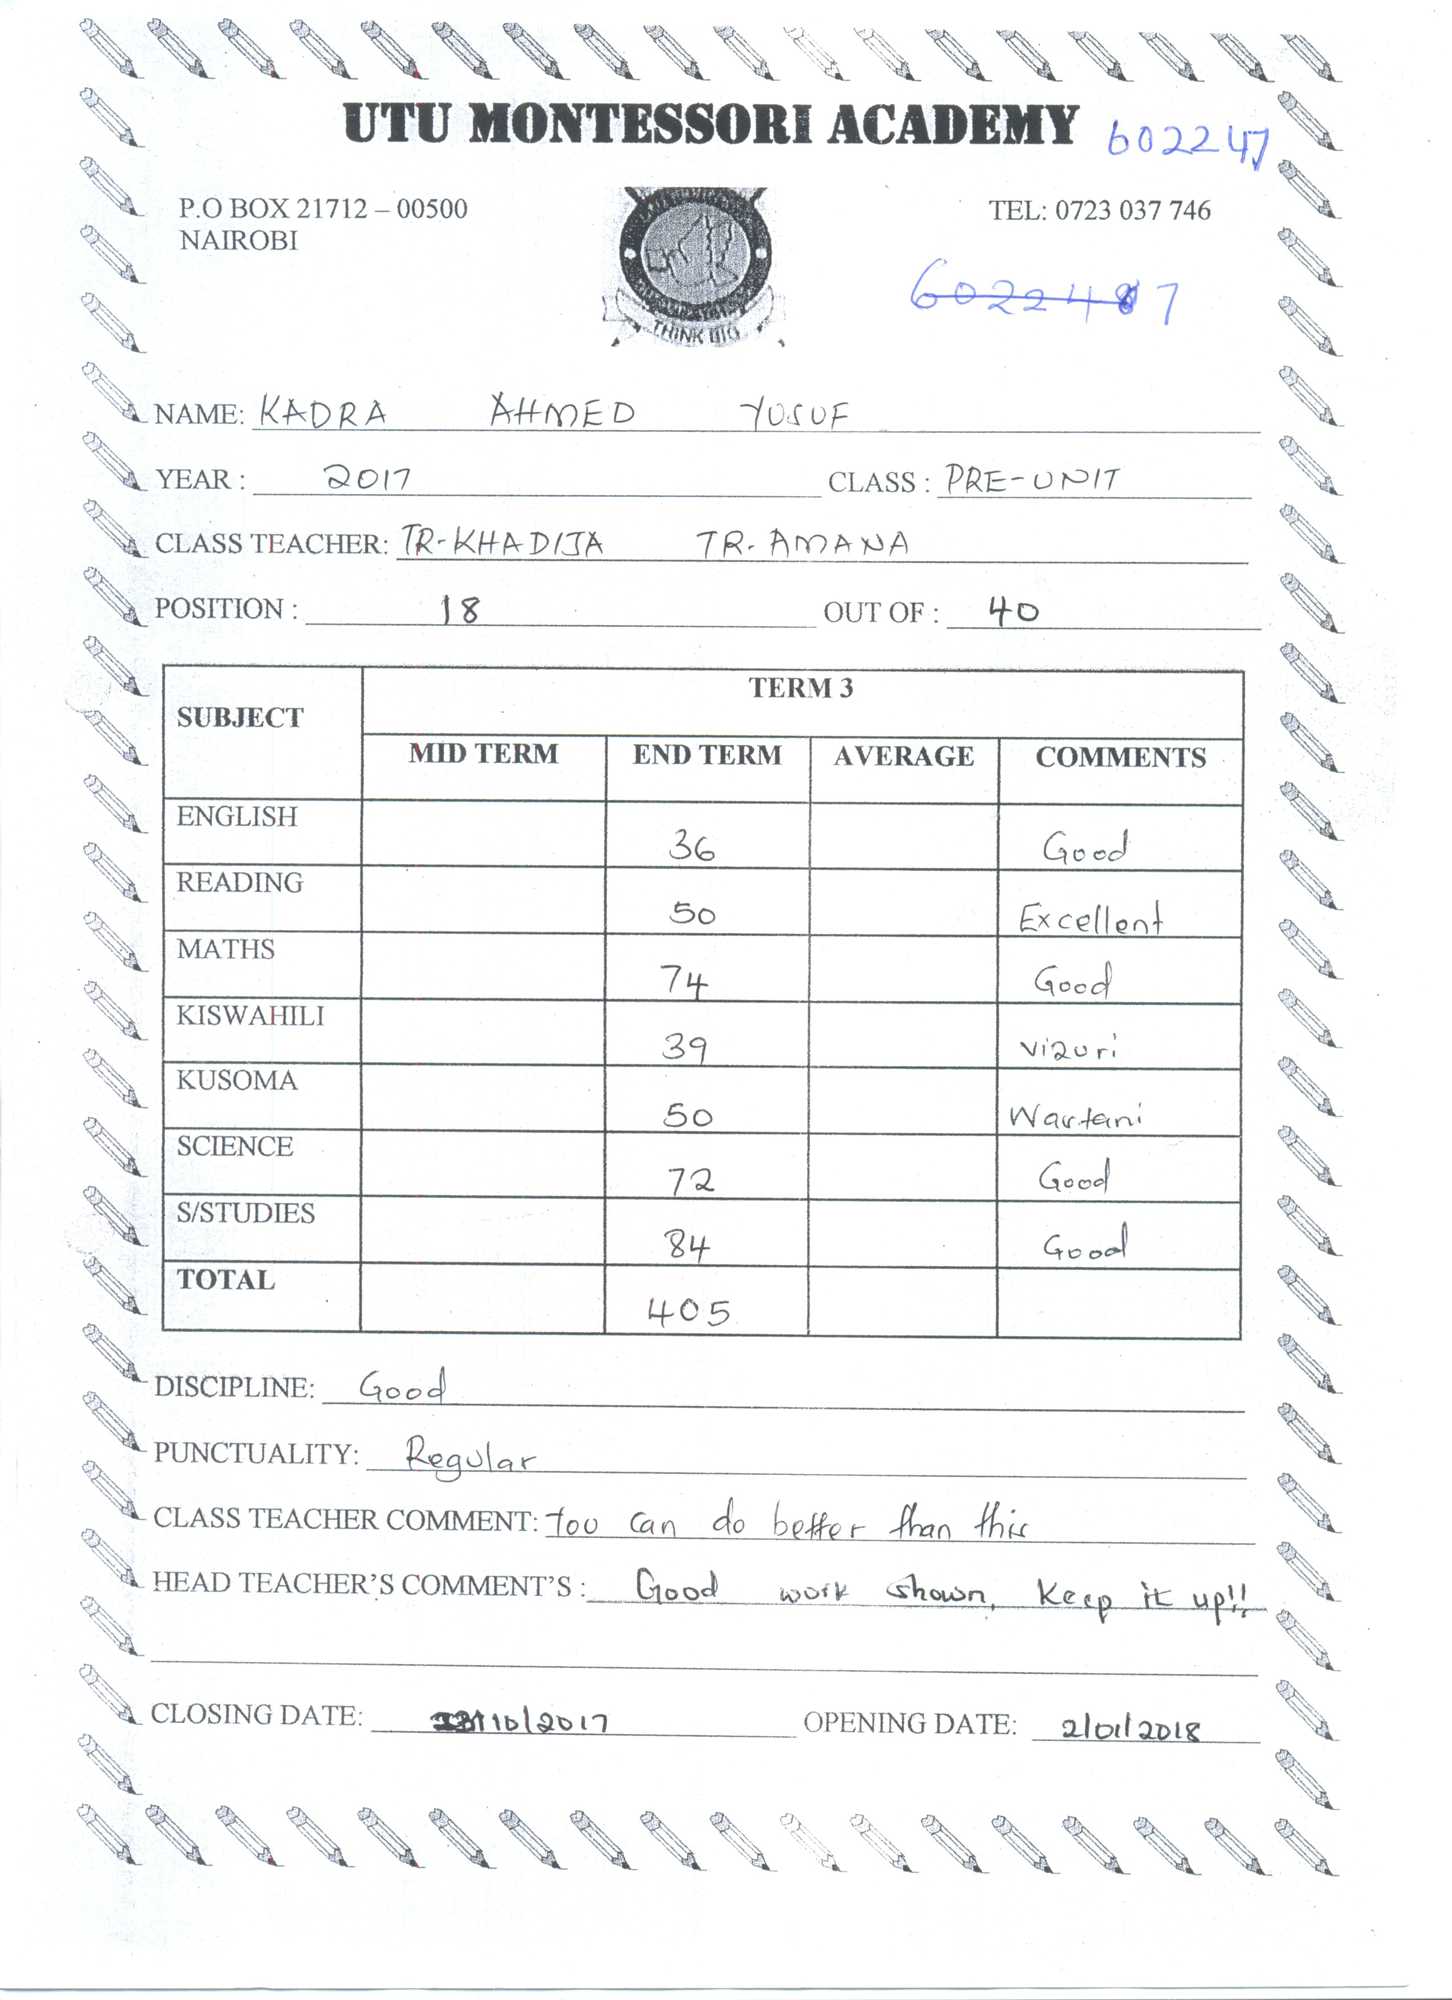 UTU MONTESSORI ACADEMY 602247
P.O BOX 21712 – 00500 TEL: 0723 037 746
NAIROBI
THINK BIG
NAME: KADRA AHMED YUSUF
YEAR : 2017 CLASS : PRE-UNIT
CLASS TEACHER: TR-KHADIJA TR. AMANA
POSITION : 18 OUT OF : 40
SUBJECT TERM 3
MID TERM END TERM AVERAGE COMMENTS
ENGLISH 36 Good
READING 50 Excellent
MATHS 74 Good
KISWAHILI 39 Vizuri
KUSOMA 50
SCIENCE 72 Good
S/STUDIES 84 Good
TOTAL 405
DISCIPLINE: Good
PUNCTUALITY: Regular
CLASS TEACHER COMMENT: You can do better than this
HEAD TEACHER'S COMMENT'S : Good work shown, Keep it up!!
CLOSING DATE: /10/2017 OPENING DATE: 2/01/2018